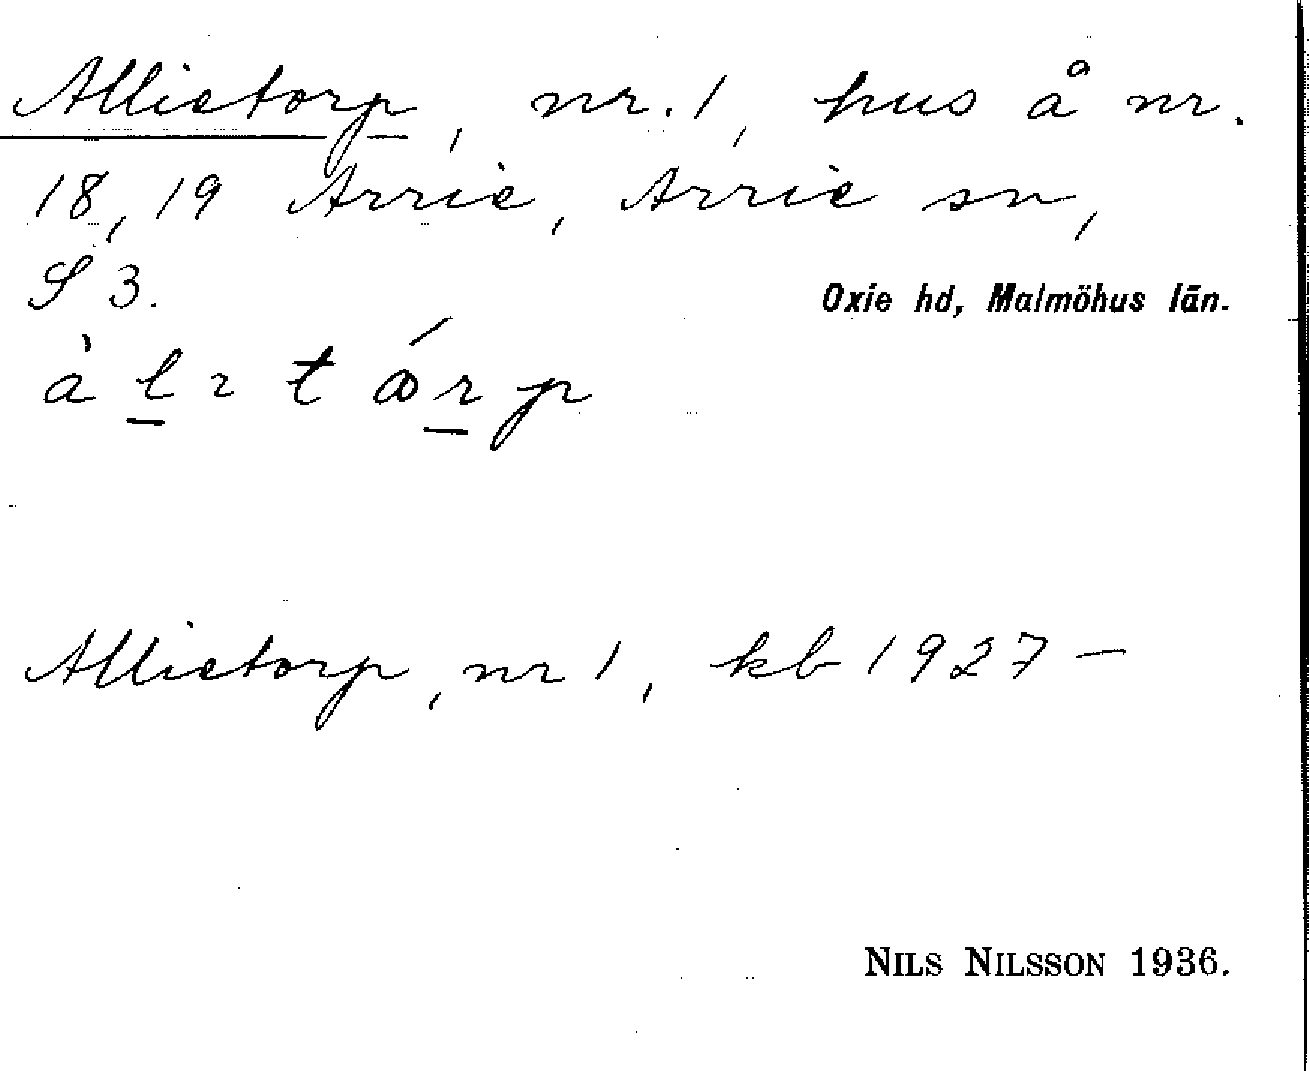 Allietorp, nr. 1, hus å nr.
18, 19 Arrie, Arrie sn,
S 3.
Oxie hd, Malmöhus län.
Allietorp, nr 1, kb 1927 —
NILS NILSSON 1936.